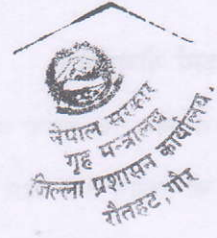 नेपाल सरकार
गृह मन्त्रालय
जिल्ला प्रशासन कार्यालय,
रौतहट, गौर